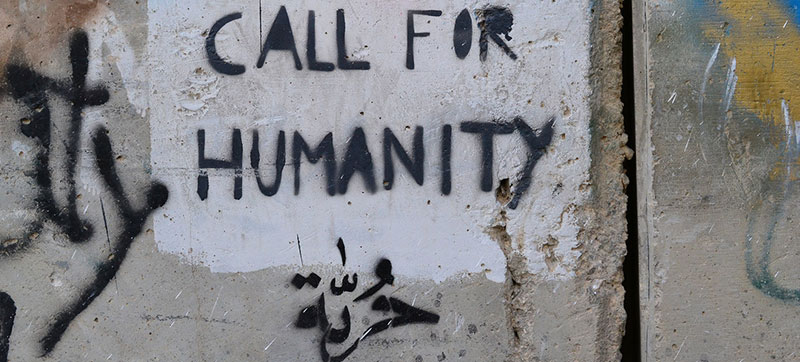 CALL FOR
HUMANITY
حريّة